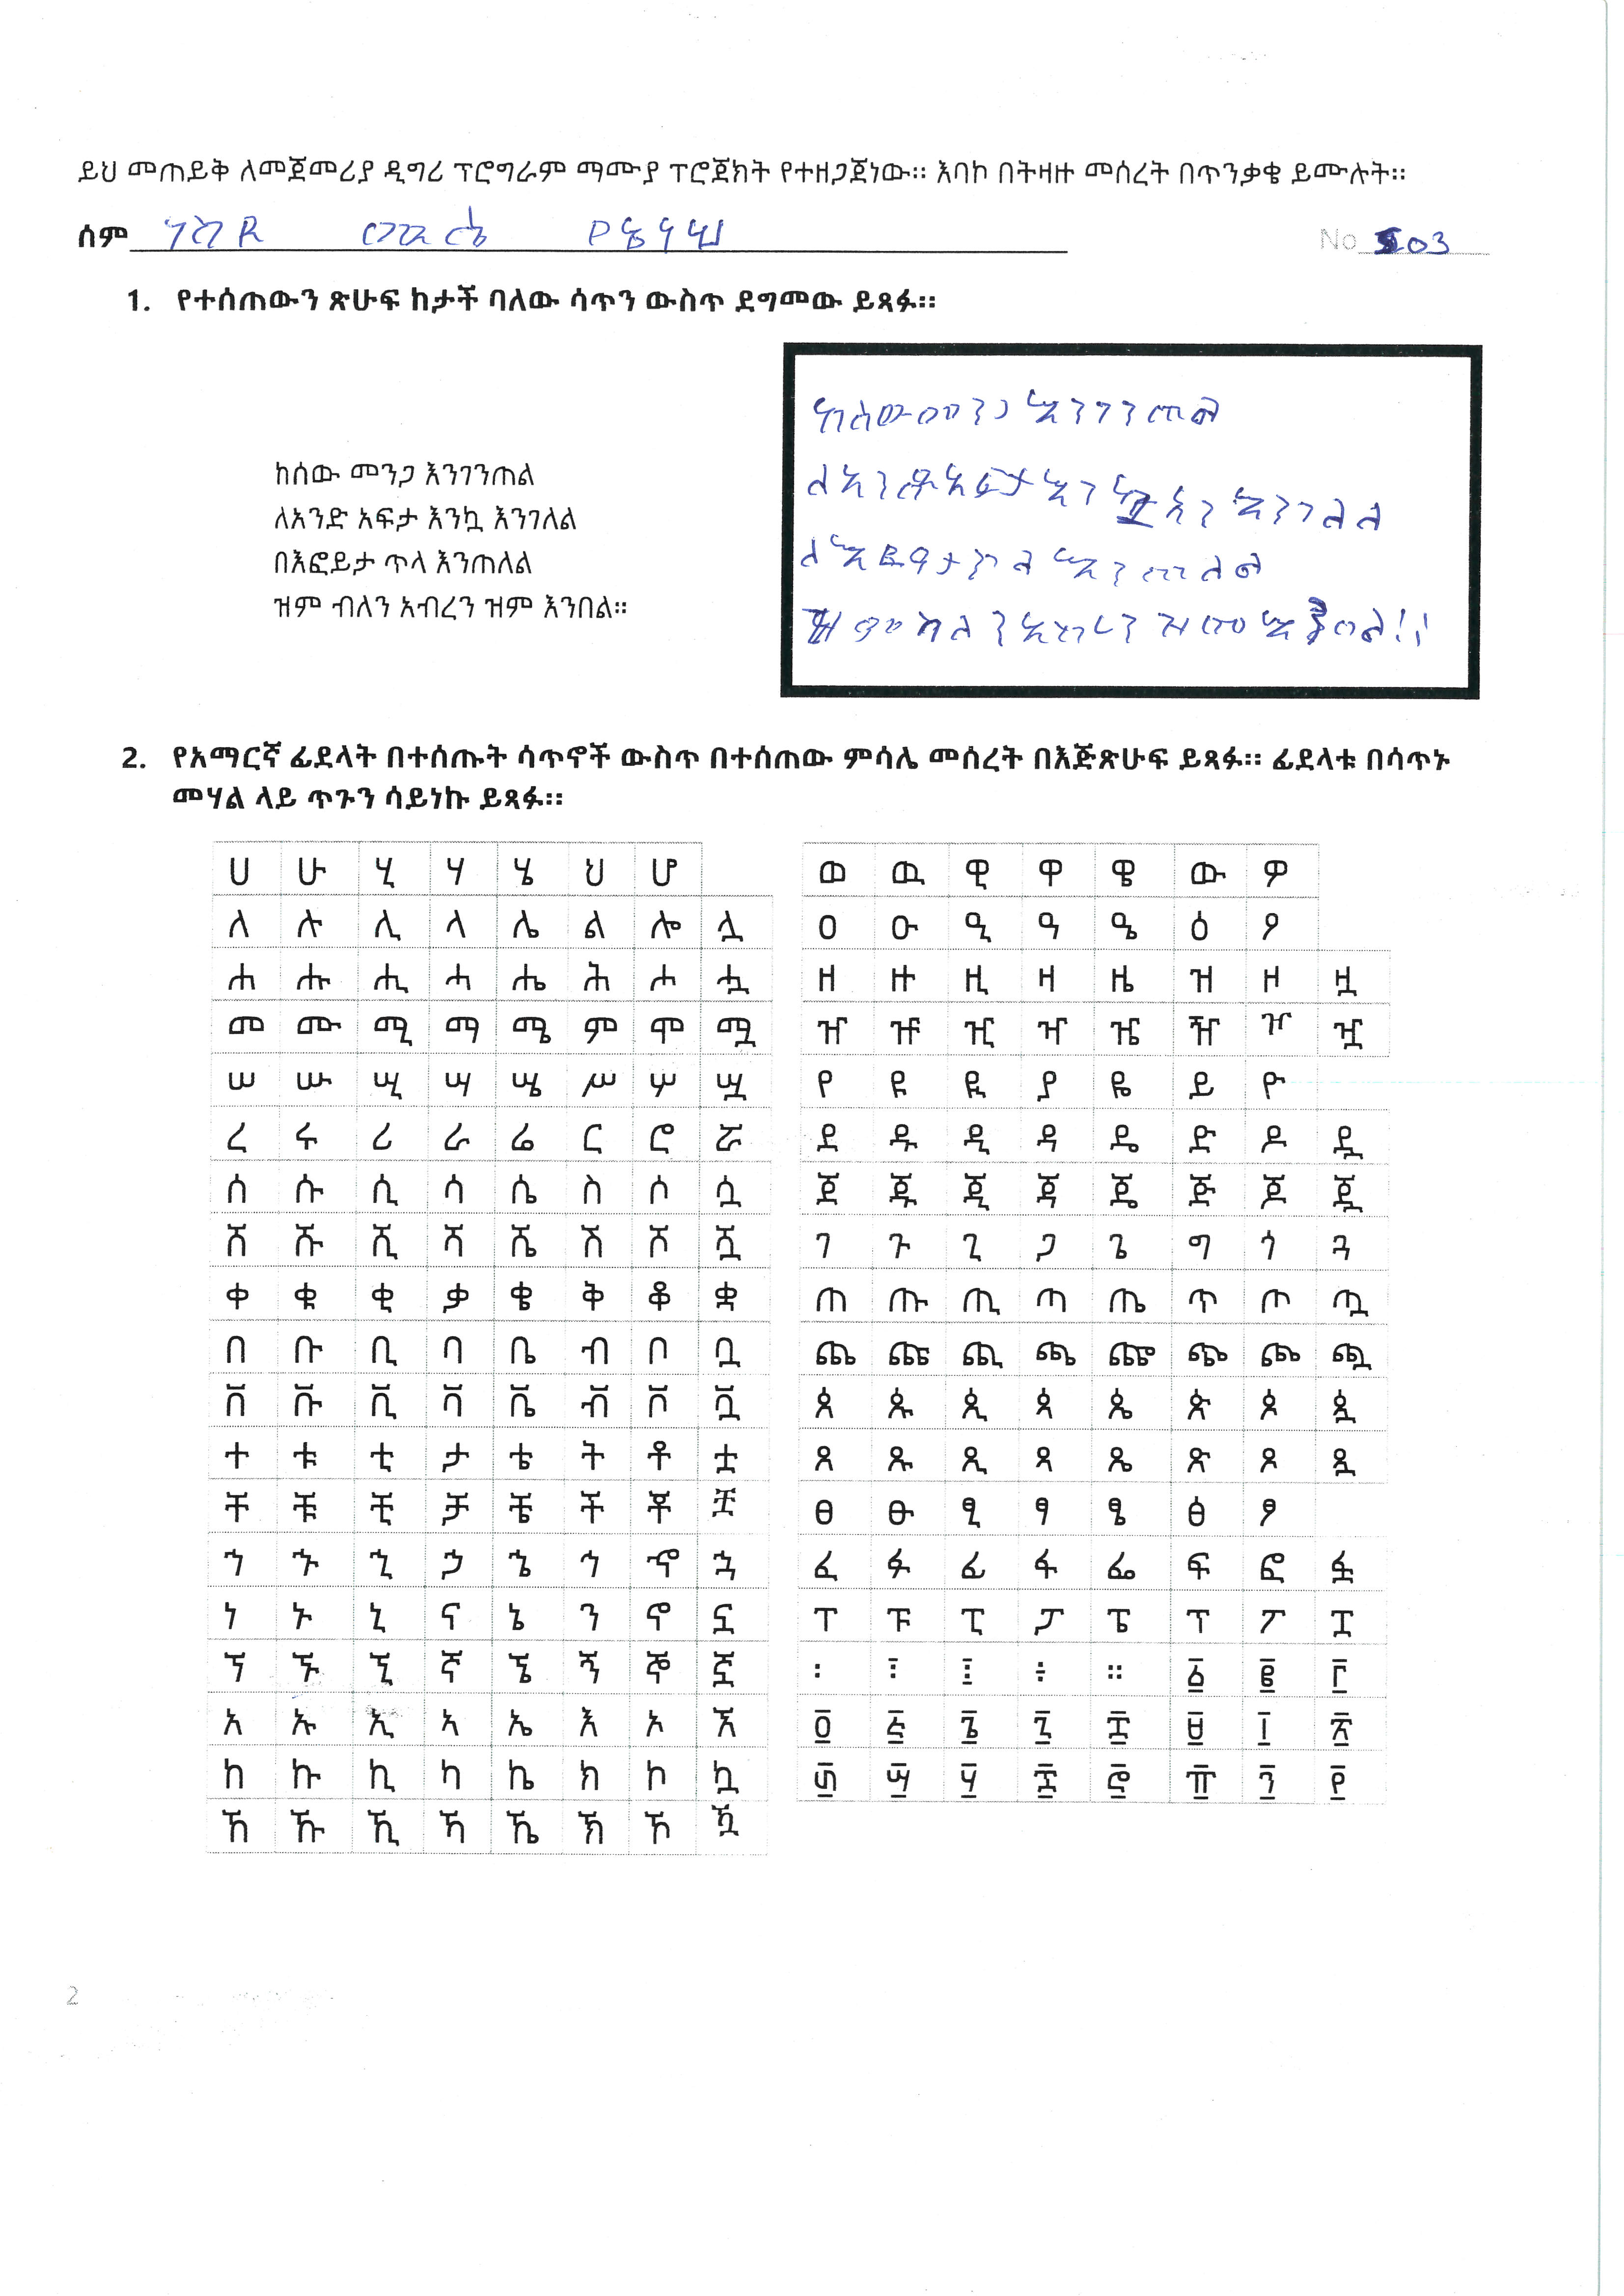 ይህ መጠይቅ ለመጀመሪያ ዲግሪ ፕሮግራም ማሙያ ፕሮጀክት የተዘጋጀነው። እባኮ በትዛዙ መሰረት በጥንቃቄ ይሙሉት።
ሰም
No 103
1. የተሰጠውን ጽሁፍ ከታች ባለው ሳጥን ውስጥ ደግመው ይጻፉ።
ከሰው መንጋ እንገንጠል
ለአንድ አፍታ እንኳ እንገለል
በእፎይታ ጥላ እንጠለል
ዝም ብለን አብረን ዝም እንበል።
ከሰው መንጋ እንገንጠል
2. የአማርኛ ፊደላት በተሰጡት ሳጥኖች ውስጥ በተሰጠው ምሳሌ መሰረት በእጅጽሁፍ ይጻፉ። ፊደላቱ በሳጥኑ
መሃል ላይ ጥጉን ሳይነኩ ይጻፉ።
ሀ ሁ ሂ ሃ ሄ ህ ሆ
ለ ሉ ሊ ላ ሌ ል ሎ ሏ
ሐ ሑ ሒ ሓ ሔ ሕ ሖ ሗ
መ ሙ ሚ ማ ሜ ም ሞ ሟ
ሠ ሡ ሢ ሣ ሤ ሥ ሦ ሧ
ረ ሩ ሪ ራ ሬ ር ሮ ሯ
ሰ ሱ ሲ ሳ ሴ ስ ሶ ሷ
ሸ ሹ ሺ ሻ ሼ ሽ ሾ ሿ
ቀ ቁ ቂ ቃ ቄ ቅ ቆ ቋ
በ ቡ ቢ ባ ቤ ብ ቦ ቧ
ቨ ቩ ቪ ቫ ቬ ቭ ቮ ቯ
ተ ቱ ቲ ታ ቴ ት ቶ ቷ
ቸ ቹ ቺ ቻ ቼ ች ቾ ቿ
ኀ ኁ ኂ ኃ ኄ ኅ ኆ ኋ
ነ ኑ ኒ ና ኔ ን ኖ ኗ
ኘ ኙ ኚ ኛ ኜ ኝ ኞ ኟ
አ ኡ ኢ ኣ ኤ እ ኦ ኧ
ከ ኩ ኪ ካ ኬ ክ ኮ ኳ
ኸ ኹ ኺ ኻ ኼ ኽ ኾ ዃ
ወ ዉ ዊ ዋ ዌ ው ዎ
ዐ ዑ ዒ ዓ ዔ ዕ ዖ
ዘ ዙ ዚ ዛ ዜ ዝ ዞ ዟ
ዠ ዡ ዢ ዣ ዤ ዥ ዦ ዧ
የ ዩ ዪ ያ ዬ ይ ዮ
ደ ዱ ዲ ዳ ዴ ድ ዶ ዷ
ጀ ጁ ጂ ጃ ጄ ጅ ጆ ጇ
ገ ጉ ጊ ጋ ጌ ግ ጎ ጓ
ጠ ጡ ጢ ጣ ጤ ጥ ጦ ጧ
ጨ ጩ ጪ ጫ ጬ ጭ ጮ ጯ
ጰ ጱ ጲ ጳ ጴ ጵ ጶ ጷ
ጸ ጹ ጺ ጻ ጼ ጽ ጾ ጿ
ፀ ፁ ፂ ፃ ፄ ፅ ፆ
ፈ ፉ ፊ ፋ ፌ ፍ ፎ ፏ
ፐ ፑ ፒ ፓ ፔ ፕ ፖ ፗ
፡ ፤ ፧ ፥ ። ፩ ፪ ፫
፬ ፭ ፮ ፯ ፰ ፱ ፲ ፳
፴ ፵ ፶ ፷ ፸ ፹ ፺ ፻
2